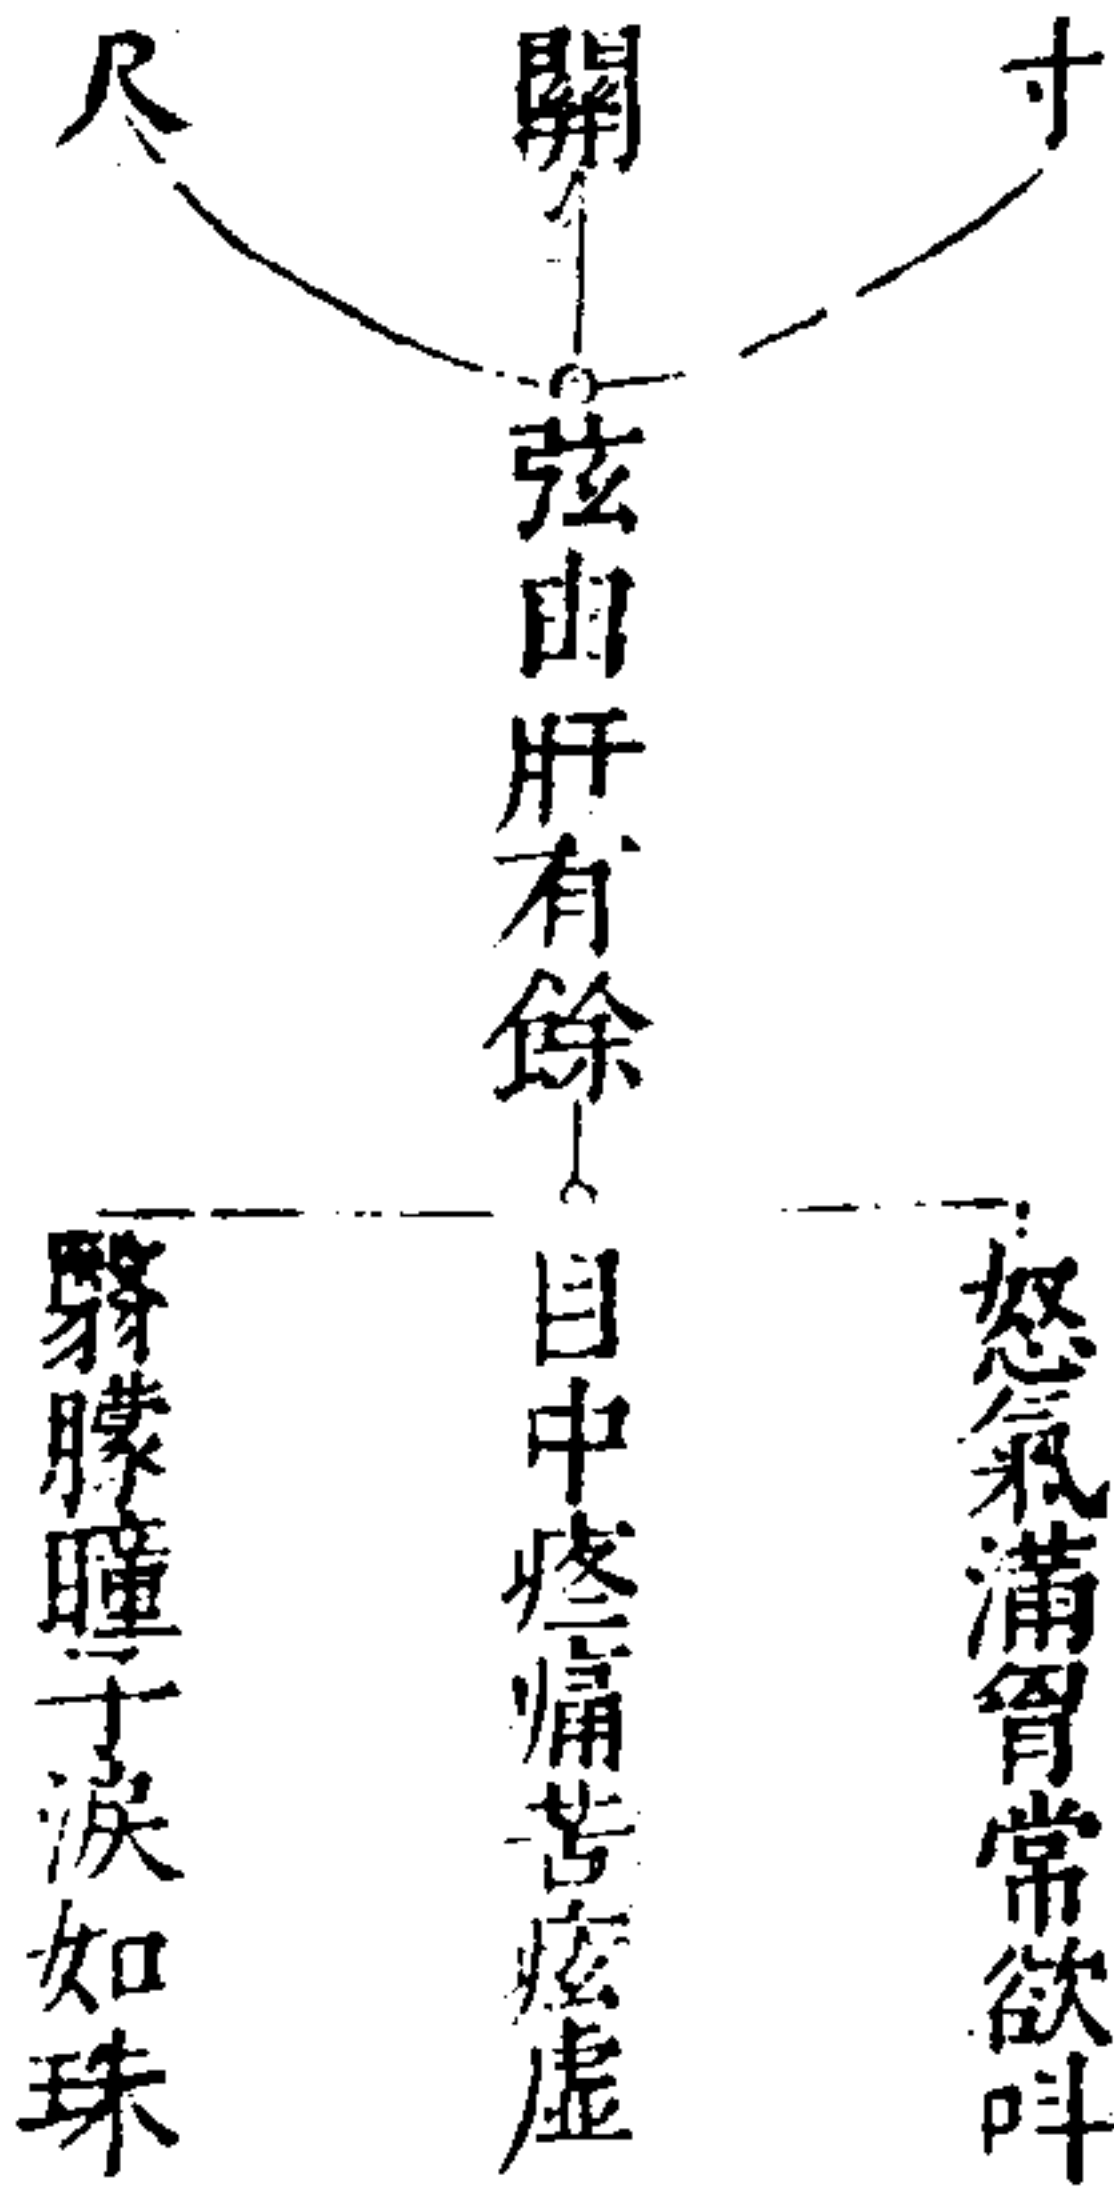 寸
關
尺
弦由肝有餘
怒氣滿胷常欲呌
目中疼痛苦痃虛
翳朦瞳子淚如珠